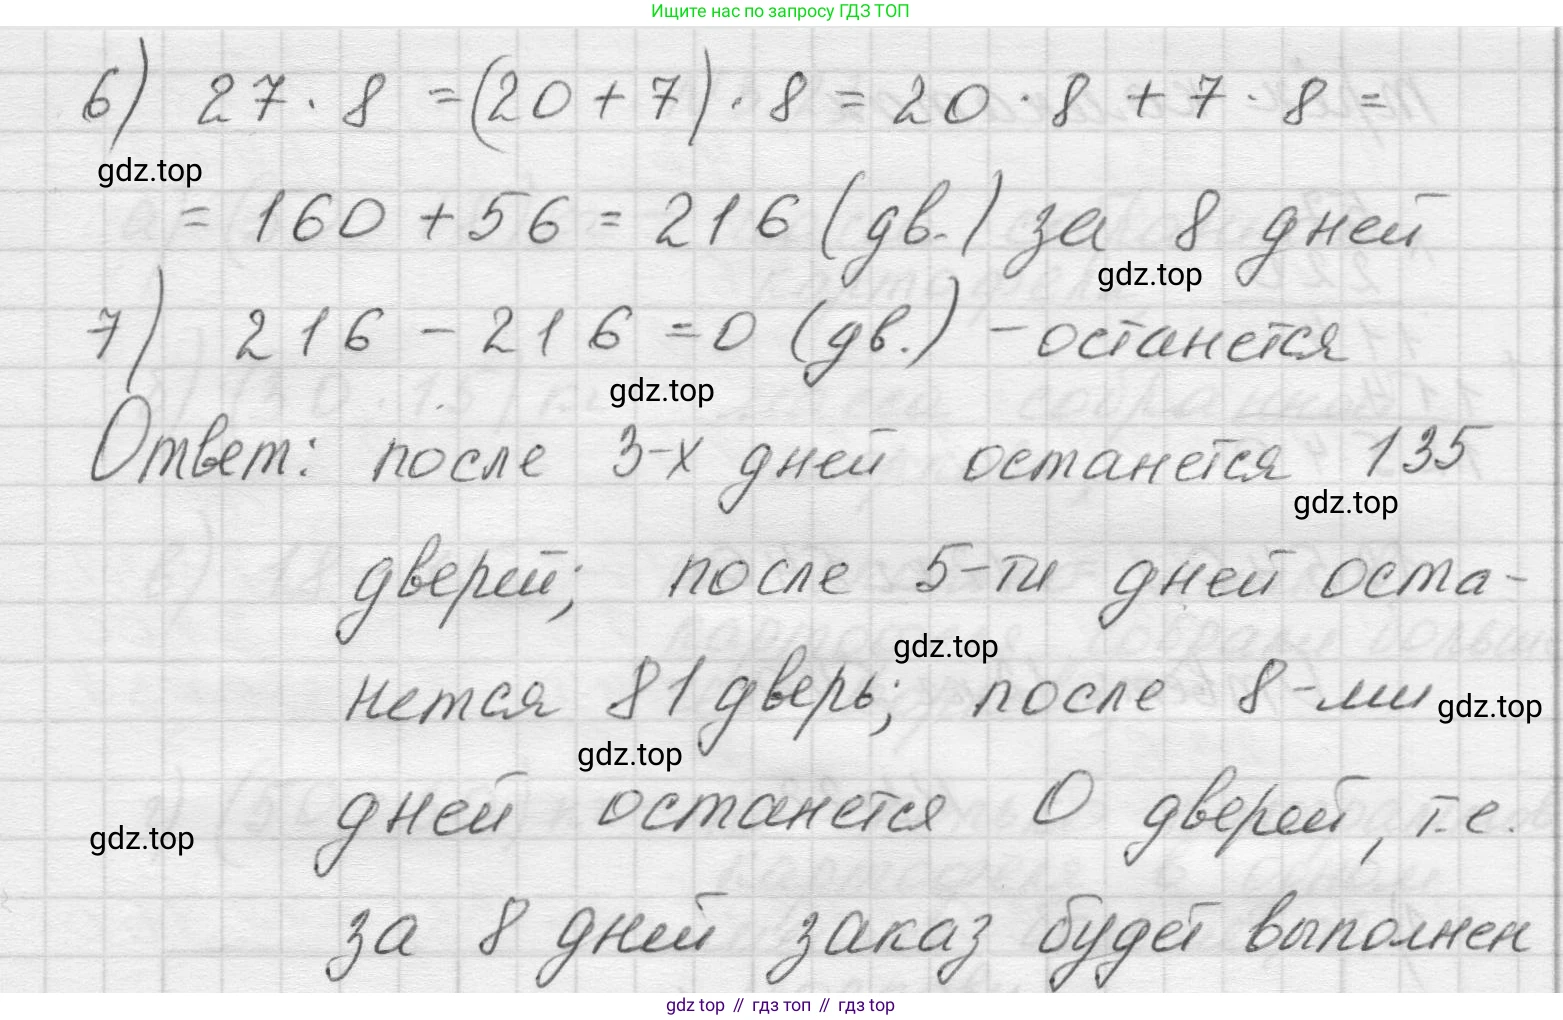 Ищите нас по запросу ГДЗ ТОП
6) 27 · 8 = (20 + 7) · 8 = 20 · 8 + 7 · 8 =
gdz.top
= 160 + 56 = 216 (дв.) за 8 дней
gdz.top
7) 216 - 216 = 0 (дв.) - останется
gdz.top
Ответ: после 3-х дней останется 135
gdz.top
дверей; после 5-ти дней оста-
gdz.top
нется 81 дверь; после 8-ми
gdz.top
gdz.top
дней останется 0 дверей, т.е.
gdz.top
за 8 дней заказ будет выполнен
gdz top // гдз топ // гдз top